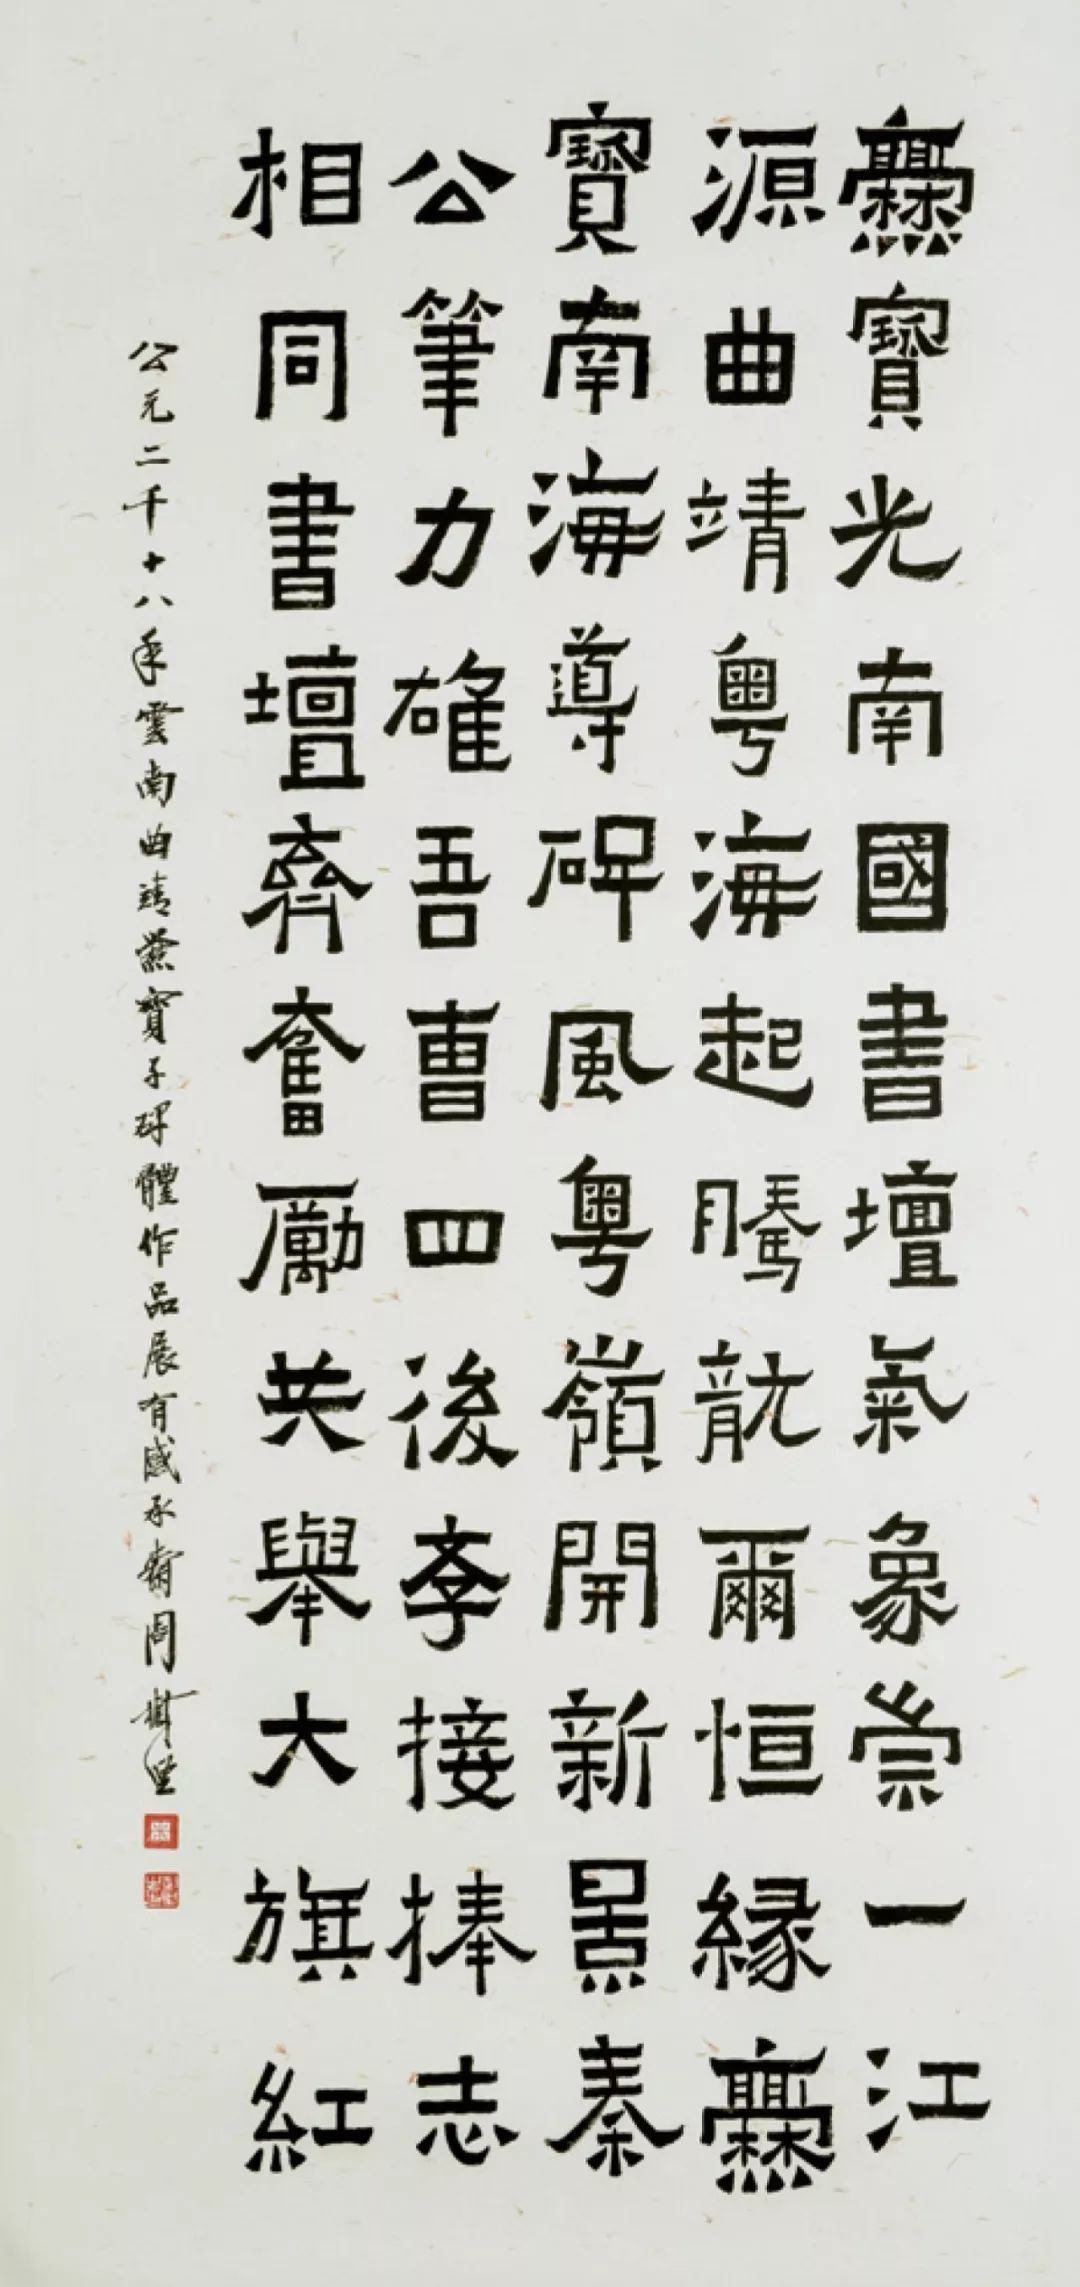 爨寶光南國書壇氣象崇一江
源曲靖粵海起騰龍爾恒緣爨
寶南海導碑風粵嶺開新景秦
公筆力雄吾曹四後斈接捧志
相同書壇齊奮勵共舉大旗紅
公元二千十八年雲南曲靖爨寶子碑體作品展有感承齋周樹堅